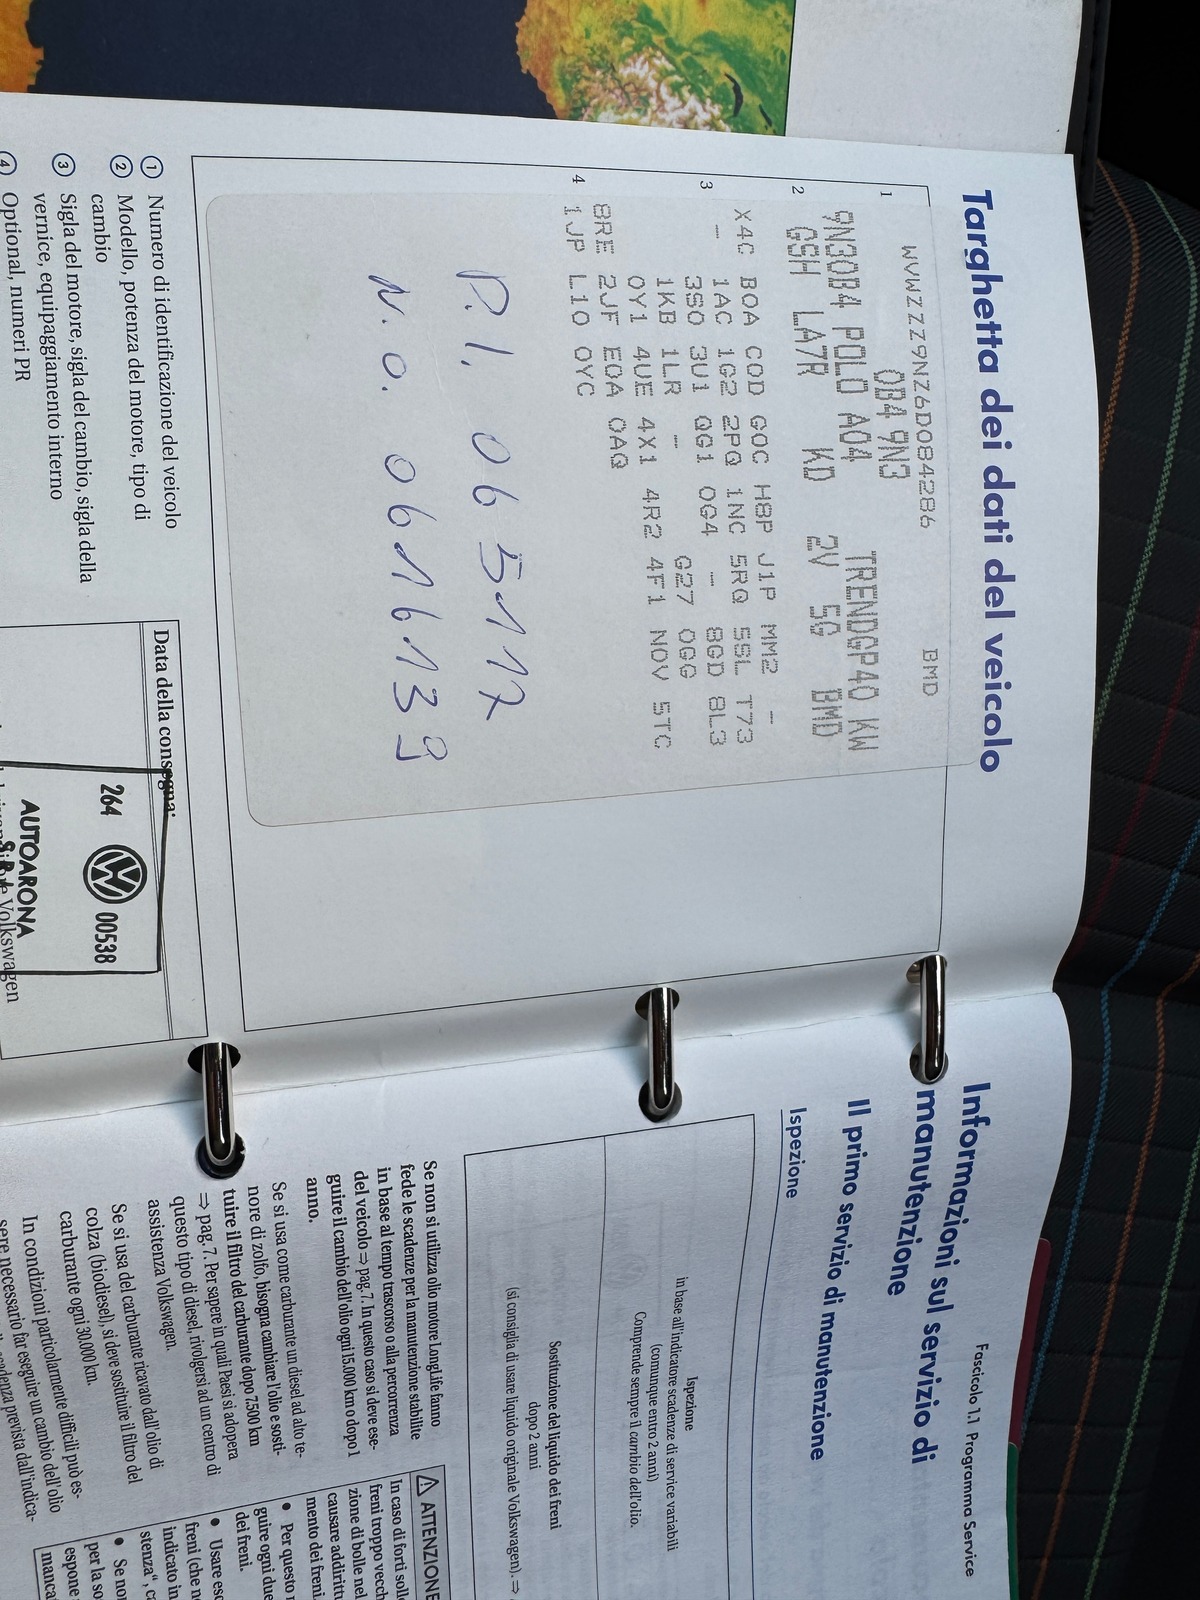 Targhetta dei dati del veicolo
1
WVWZZZ9NZ6D084286 BMD
0B4 9N3
9N30B4 POLO A04 TRENDGP40 KW
2
GSH LA7R KD 2V 5G BMD
X4C B0A C0D G0C H8P J1P MM2 -
3
- 1AC 1G2 2PQ 1NC 5RQ 5SL T73
3S0 3U1 QG1 0G4 - 8GD 8L3
1KB 1LR - G27 0GG
0Y1 4UE 4X1 4R2 4F1 N0V 5TC
8RE 2JF E0A 0AQ
4
1JP L10 0YC
P. I. 06 5117
N. O. 0616139
1 Numero di identificazione del veicolo
2 Modello, potenza del motore, tipo di
cambio
3 Sigla del motore, sigla del cambio, sigla della
vernice, equipaggiamento interno
4 Optional, numeri PR
Data della consegna:
264 00538
AUTOARONA
Volkswagen
Fascicolo 1.1 Programma Service
Informazioni sul servizio di
manutenzione
Il primo servizio di manutenzione
Ispezione
Ispezione
in base all'indicatore scadenze di service variabili
(comunque entro 2 anni)
Comprende sempre il cambio dell'olio.
Sostituzione del liquido dei freni
dopo 2 anni
(si consiglia di usare liquido originale Volkswagen). ⇒
Se non si utilizza olio motore LongLife fanno
fede le scadenze per la manutenzione stabilite
in base al tempo trascorso o alla percorrenza
del veicolo ⇒ pag. 7. In questo caso si deve ese-
guire il cambio dell'olio ogni 15.000 km o dopo 1
anno.
Se si usa come carburante un diesel ad alto te-
nore di zolfo, bisogna cambiare l'olio e sosti-
tuire il filtro del carburante dopo 7.500 km
⇒ pag. 7. Per sapere in quali Paesi si adopera
questo tipo di diesel, rivolgersi ad un centro di
assistenza Volkswagen.
Se si usa del carburante ricavato dall'olio di
colza (biodiesel), si deve sostituire il filtro del
carburante ogni 30.000 km.
In condizioni particolarmente difficili può es-
sere necessario far eseguire un cambio dell'olio
prevista dall'indica-
ATTENZIONE
In caso di forti solle
freni troppo vecch
zione di bolle nel
causare addirittu
mento dei freni.
• Per questo
guire ogni due
dei freni.
• Usare esc
freni (che n
indicato in
stenza", c
• Se no
per la so
espone
manca